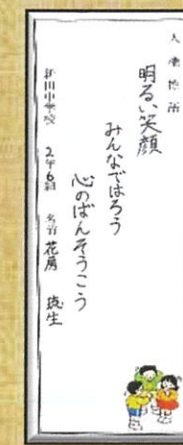 人権標語
明るい笑顔
みんなではろう
心のばんそうこう
新田中学校 2年6組 名前 花房 琉生